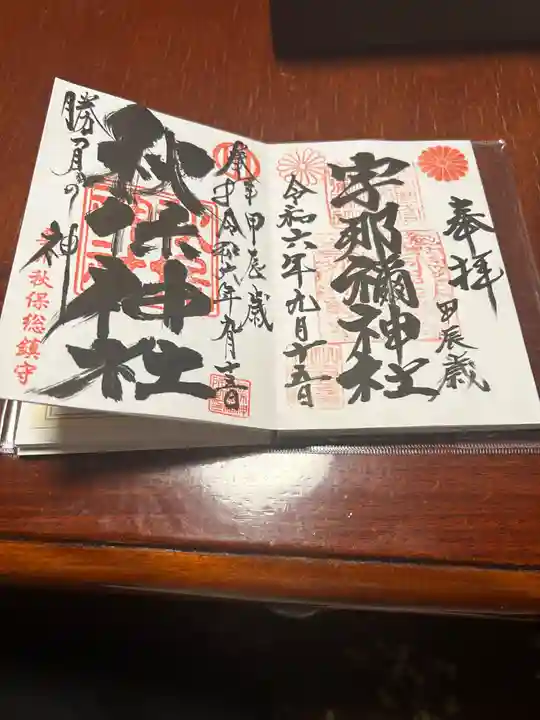 奉拝
甲辰歳
宇那禰神社
令和六年九月十五日
甲辰歳
令和六年九月十五日
秋保神社
勝負の神
秋保総鎮守